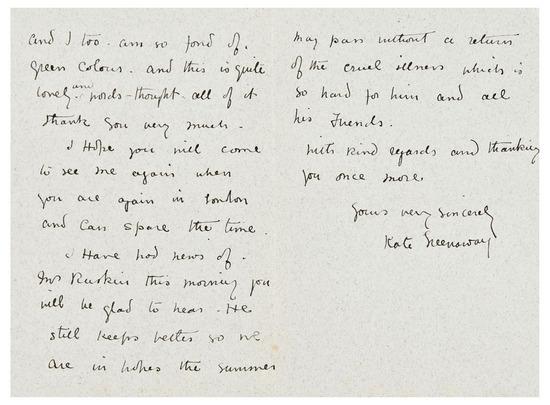 and I too. am so fond of.
green colour. and this is quite
lovely and words - thought - all of it
thank you very much.
I Hope you will come
to see me again when
you are again in London
and can spare the time.
I Have had news of.
Mr Ruskin this morning you
will be glad to hear. He
still keeps better so we
are in hopes the summer
may pass without a return
of the cruel illness which is
so hard for him and all
his Friends.
with kind regards and thanking
you once more.
Yours very sincerely
Kate Greenaway